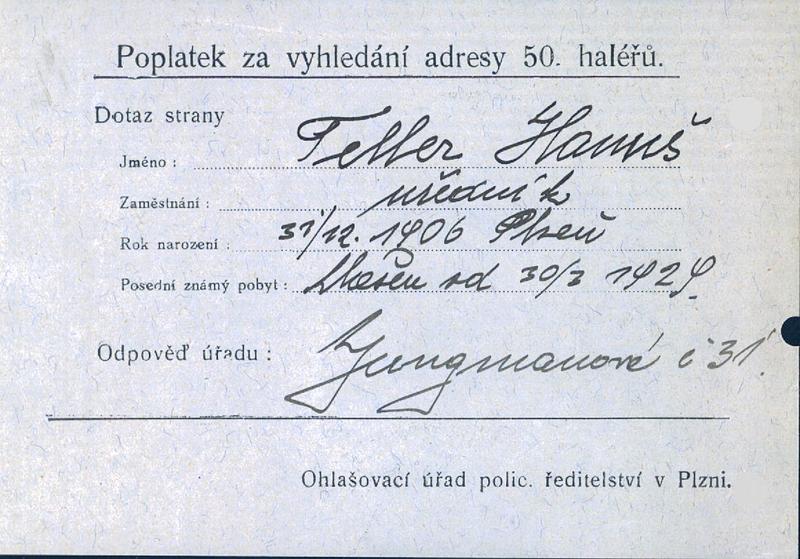 Poplatek za vyhledání adresy 50. haléřů.
Dotaz strany
Jméno : Teller Hanuš
Zaměstnání : úředník
Rok narození : 31/12. 1906 Plzeň
Posední známý pobyt : od 30/3 1929.
Odpověď úřadu : Jungmanově č 31.
Ohlašovací úřad polic. ředitelství v Plzni.